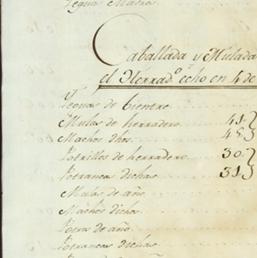 Yeguas Madres
Caballada y Mulada
el Herrad.º echo en 4 de
Yeguas de bientre
Mulas de herradero 41.
Machos dhos. 45.
Potrillos de herradero 30.
Potrancas dichas 31.
Mulas de año
Machos dichos
Potros de año
Potrancas dichas